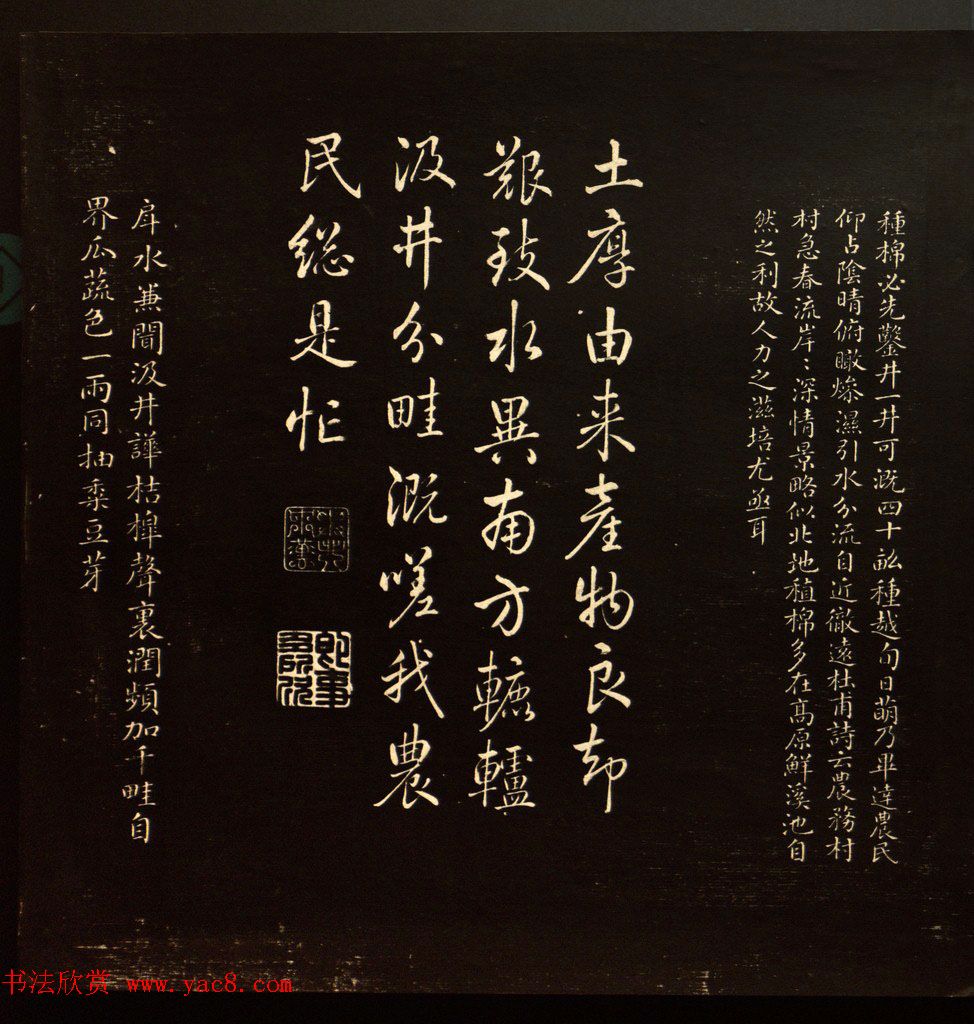 種棉必先鑿井一井可溉四十畆種越旬日萌乃畢達農民
仰占陰晴俯瞰燥濕引水分流自近徹遠杜甫詩云農務村
村急春流岸〻深情景略似北地植棉多在高原鮮溪池自
然之利故人力之滋培尤亟耳
土厚由来產物良却
艱致水異南方轆轤
汲井分畦溉嗟我農
民總是忙
即事多所欣
戽水兼聞汲井譁桔槔聲裏潤頻加千畦自
界瓜蔬色一雨同抽黍豆芽
书法欣赏 www.yac8.com